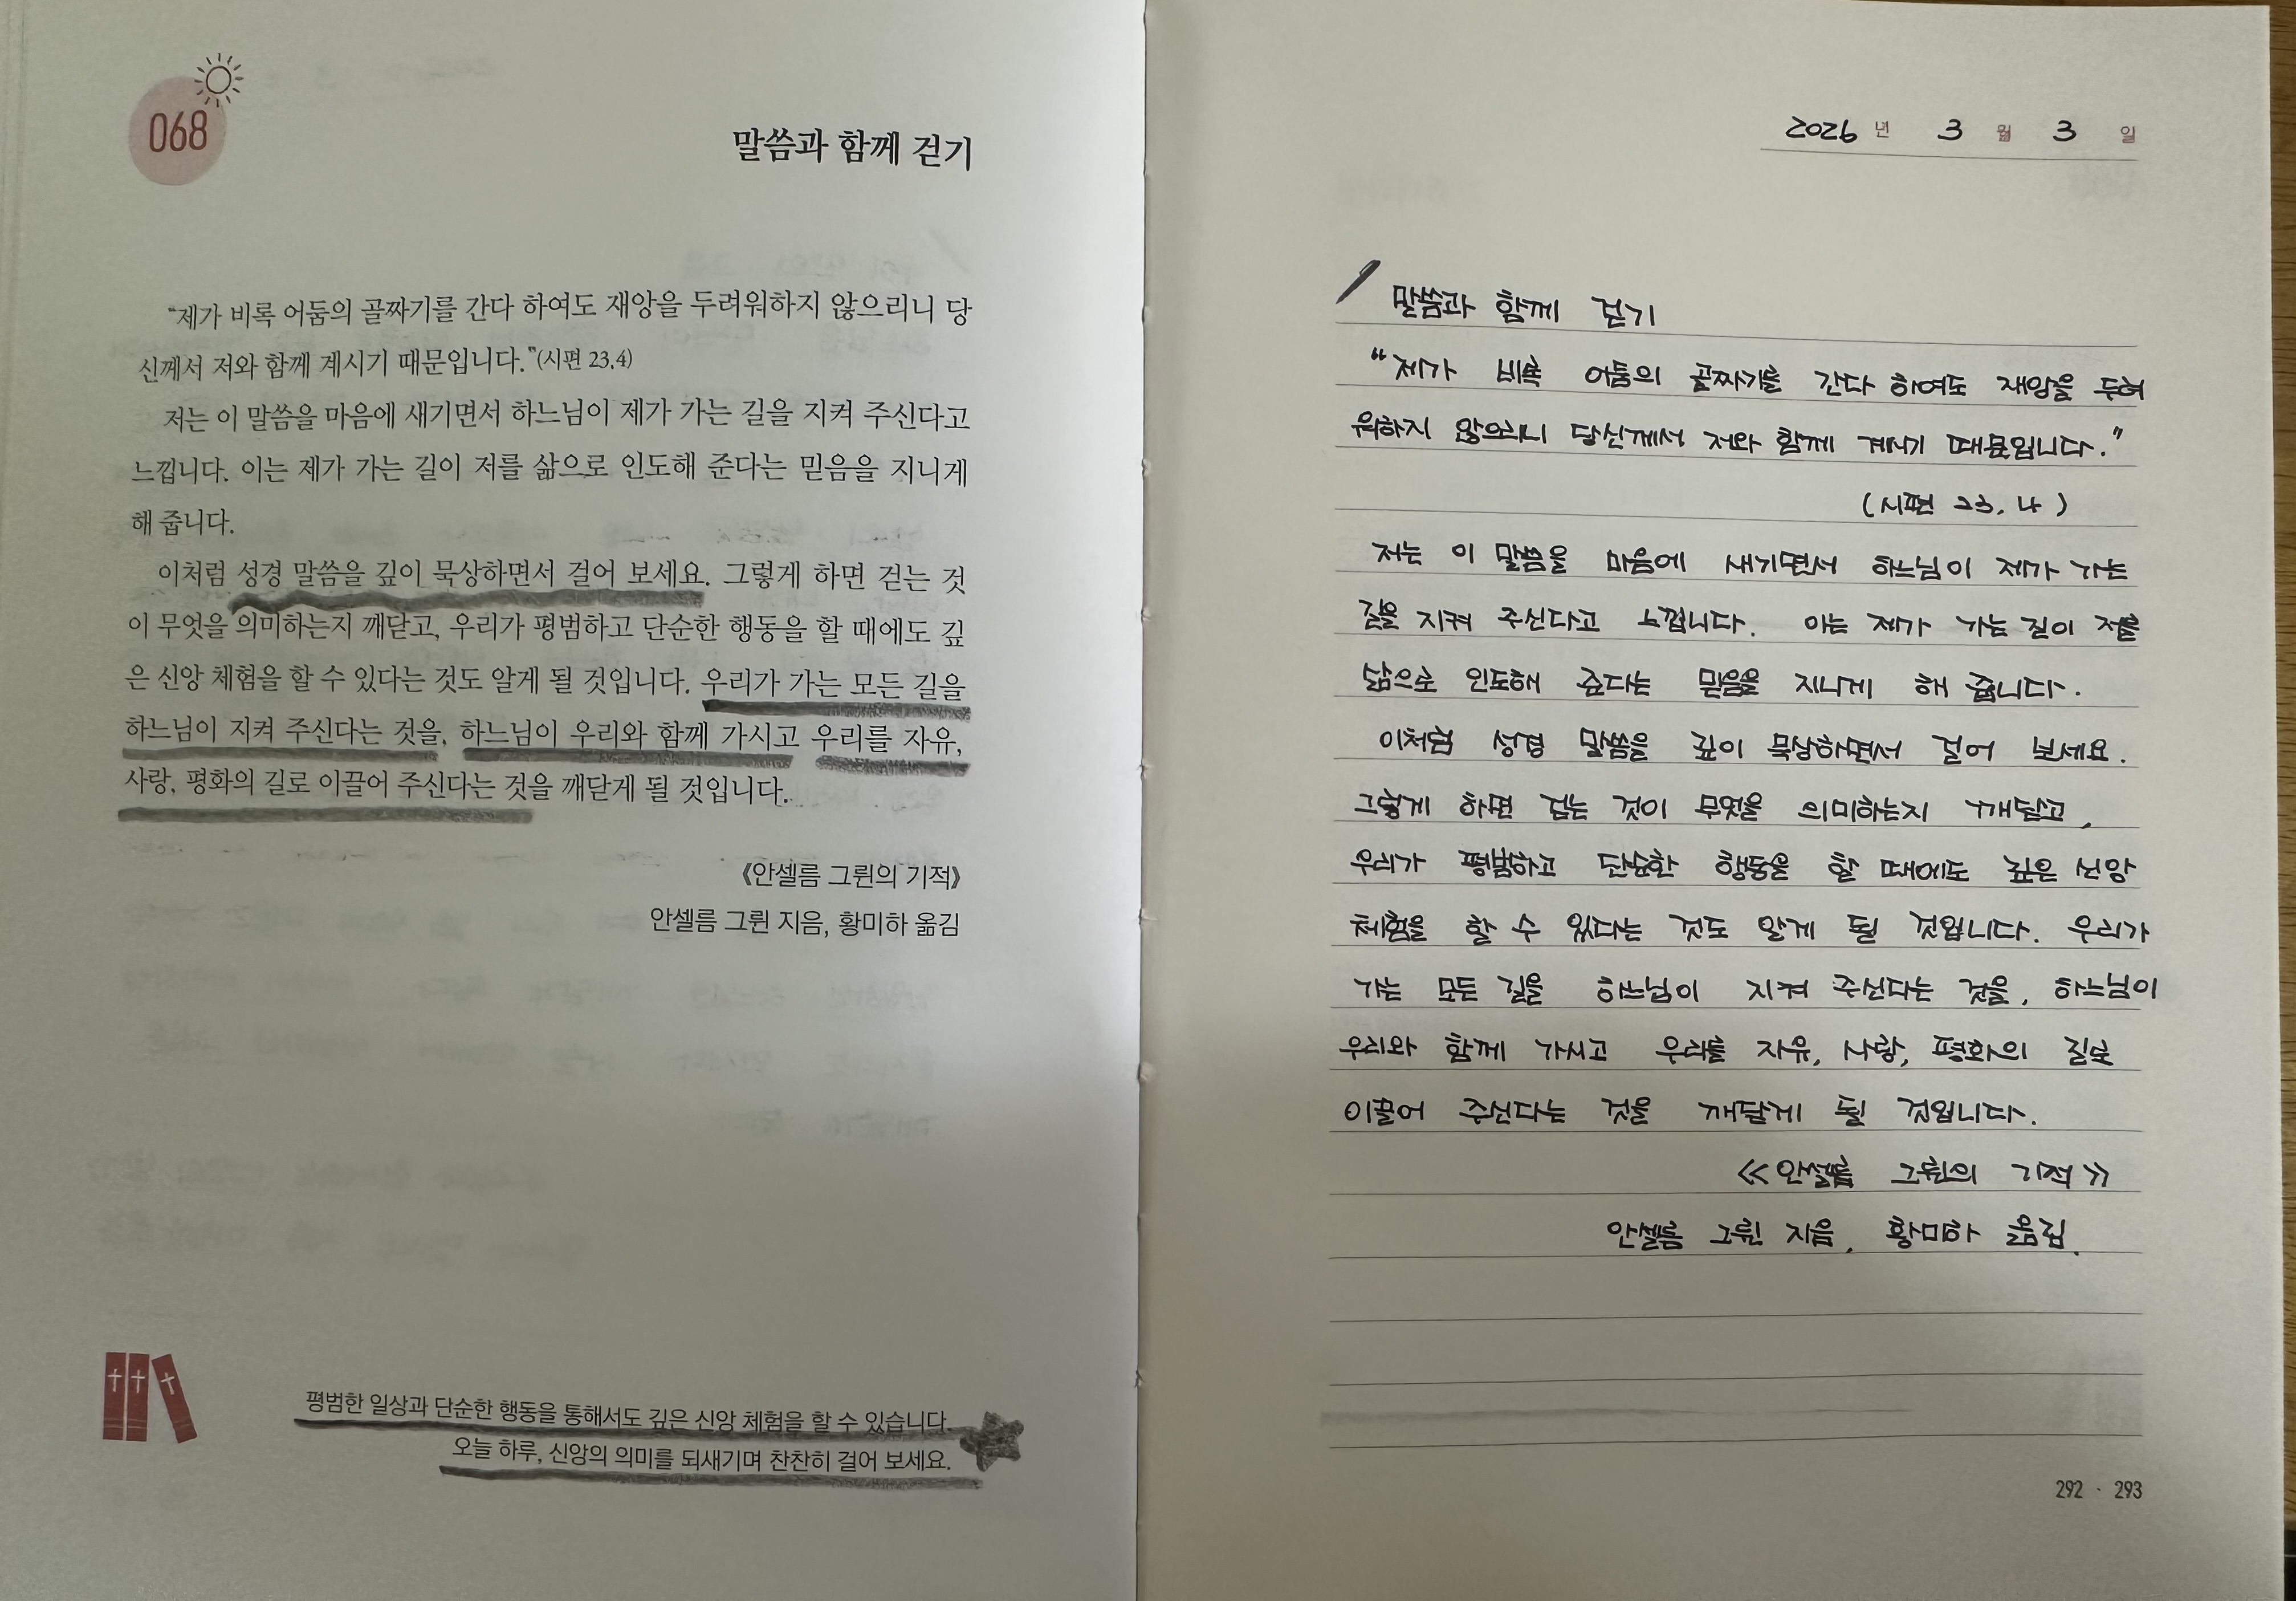 068
말씀과 함께 걷기
“제가 비록 어둠의 골짜기를 간다 하여도 재앙을 두려워하지 않으리니 당
신께서 저와 함께 계시기 때문입니다.”(시편 23,4)
저는 이 말씀을 마음에 새기면서 하느님이 제가 가는 길을 지켜 주신다고
느낍니다. 이는 제가 가는 길이 저를 삶으로 인도해 준다는 믿음을 지니게
해 줍니다.
이처럼 성경 말씀을 깊이 묵상하면서 걸어 보세요. 그렇게 하면 걷는 것
이 무엇을 의미하는지 깨닫고, 우리가 평범하고 단순한 행동을 할 때에도 깊
은 신앙 체험을 할 수 있다는 것도 알게 될 것입니다. 우리가 가는 모든 길을
하느님이 지켜 주신다는 것을, 하느님이 우리와 함께 가시고 우리를 자유,
사랑, 평화의 길로 이끌어 주신다는 것을 깨닫게 될 것입니다.
《안셀름 그륀의 기적》
안셀름 그륀 지음, 황미하 옮김
평범한 일상과 단순한 행동을 통해서도 깊은 신앙 체험을 할 수 있습니다.
오늘 하루, 신앙의 의미를 되새기며 찬찬히 걸어 보세요.
2026 년 3 월 3 일
말씀과 함께 걷기
“제가 비록 어둠의 골짜기를 간다 하여도 재앙을 두려
워하지 않으리니 당신께서 저와 함께 계시기 때문입니다.”
(시편 23. 4)
저는 이 말씀을 마음에 새기면서 하느님이 제가 가는
길을 지켜 주신다고 느낍니다. 이는 제가 가는 길이 저를
삶으로 인도해 준다는 믿음을 지니게 해 줍니다.
이처럼 성경 말씀을 깊이 묵상하면서 걸어 보세요.
그렇게 하면 걷는 것이 무엇을 의미하는지 깨닫고,
우리가 평범하고 단순한 행동을 할 때에도 깊은 신앙
체험을 할 수 있다는 것도 알게 될 것입니다. 우리가
가는 모든 길을 하느님이 지켜 주신다는 것을, 하느님이
우리와 함께 가시고 우리를 자유, 사랑, 평화의 길로
이끌어 주신다는 것을 깨닫게 될 것입니다.
《안셀름 그륀의 기적》
안셀름 그륀 지음, 황미하 옮김.
292 · 293